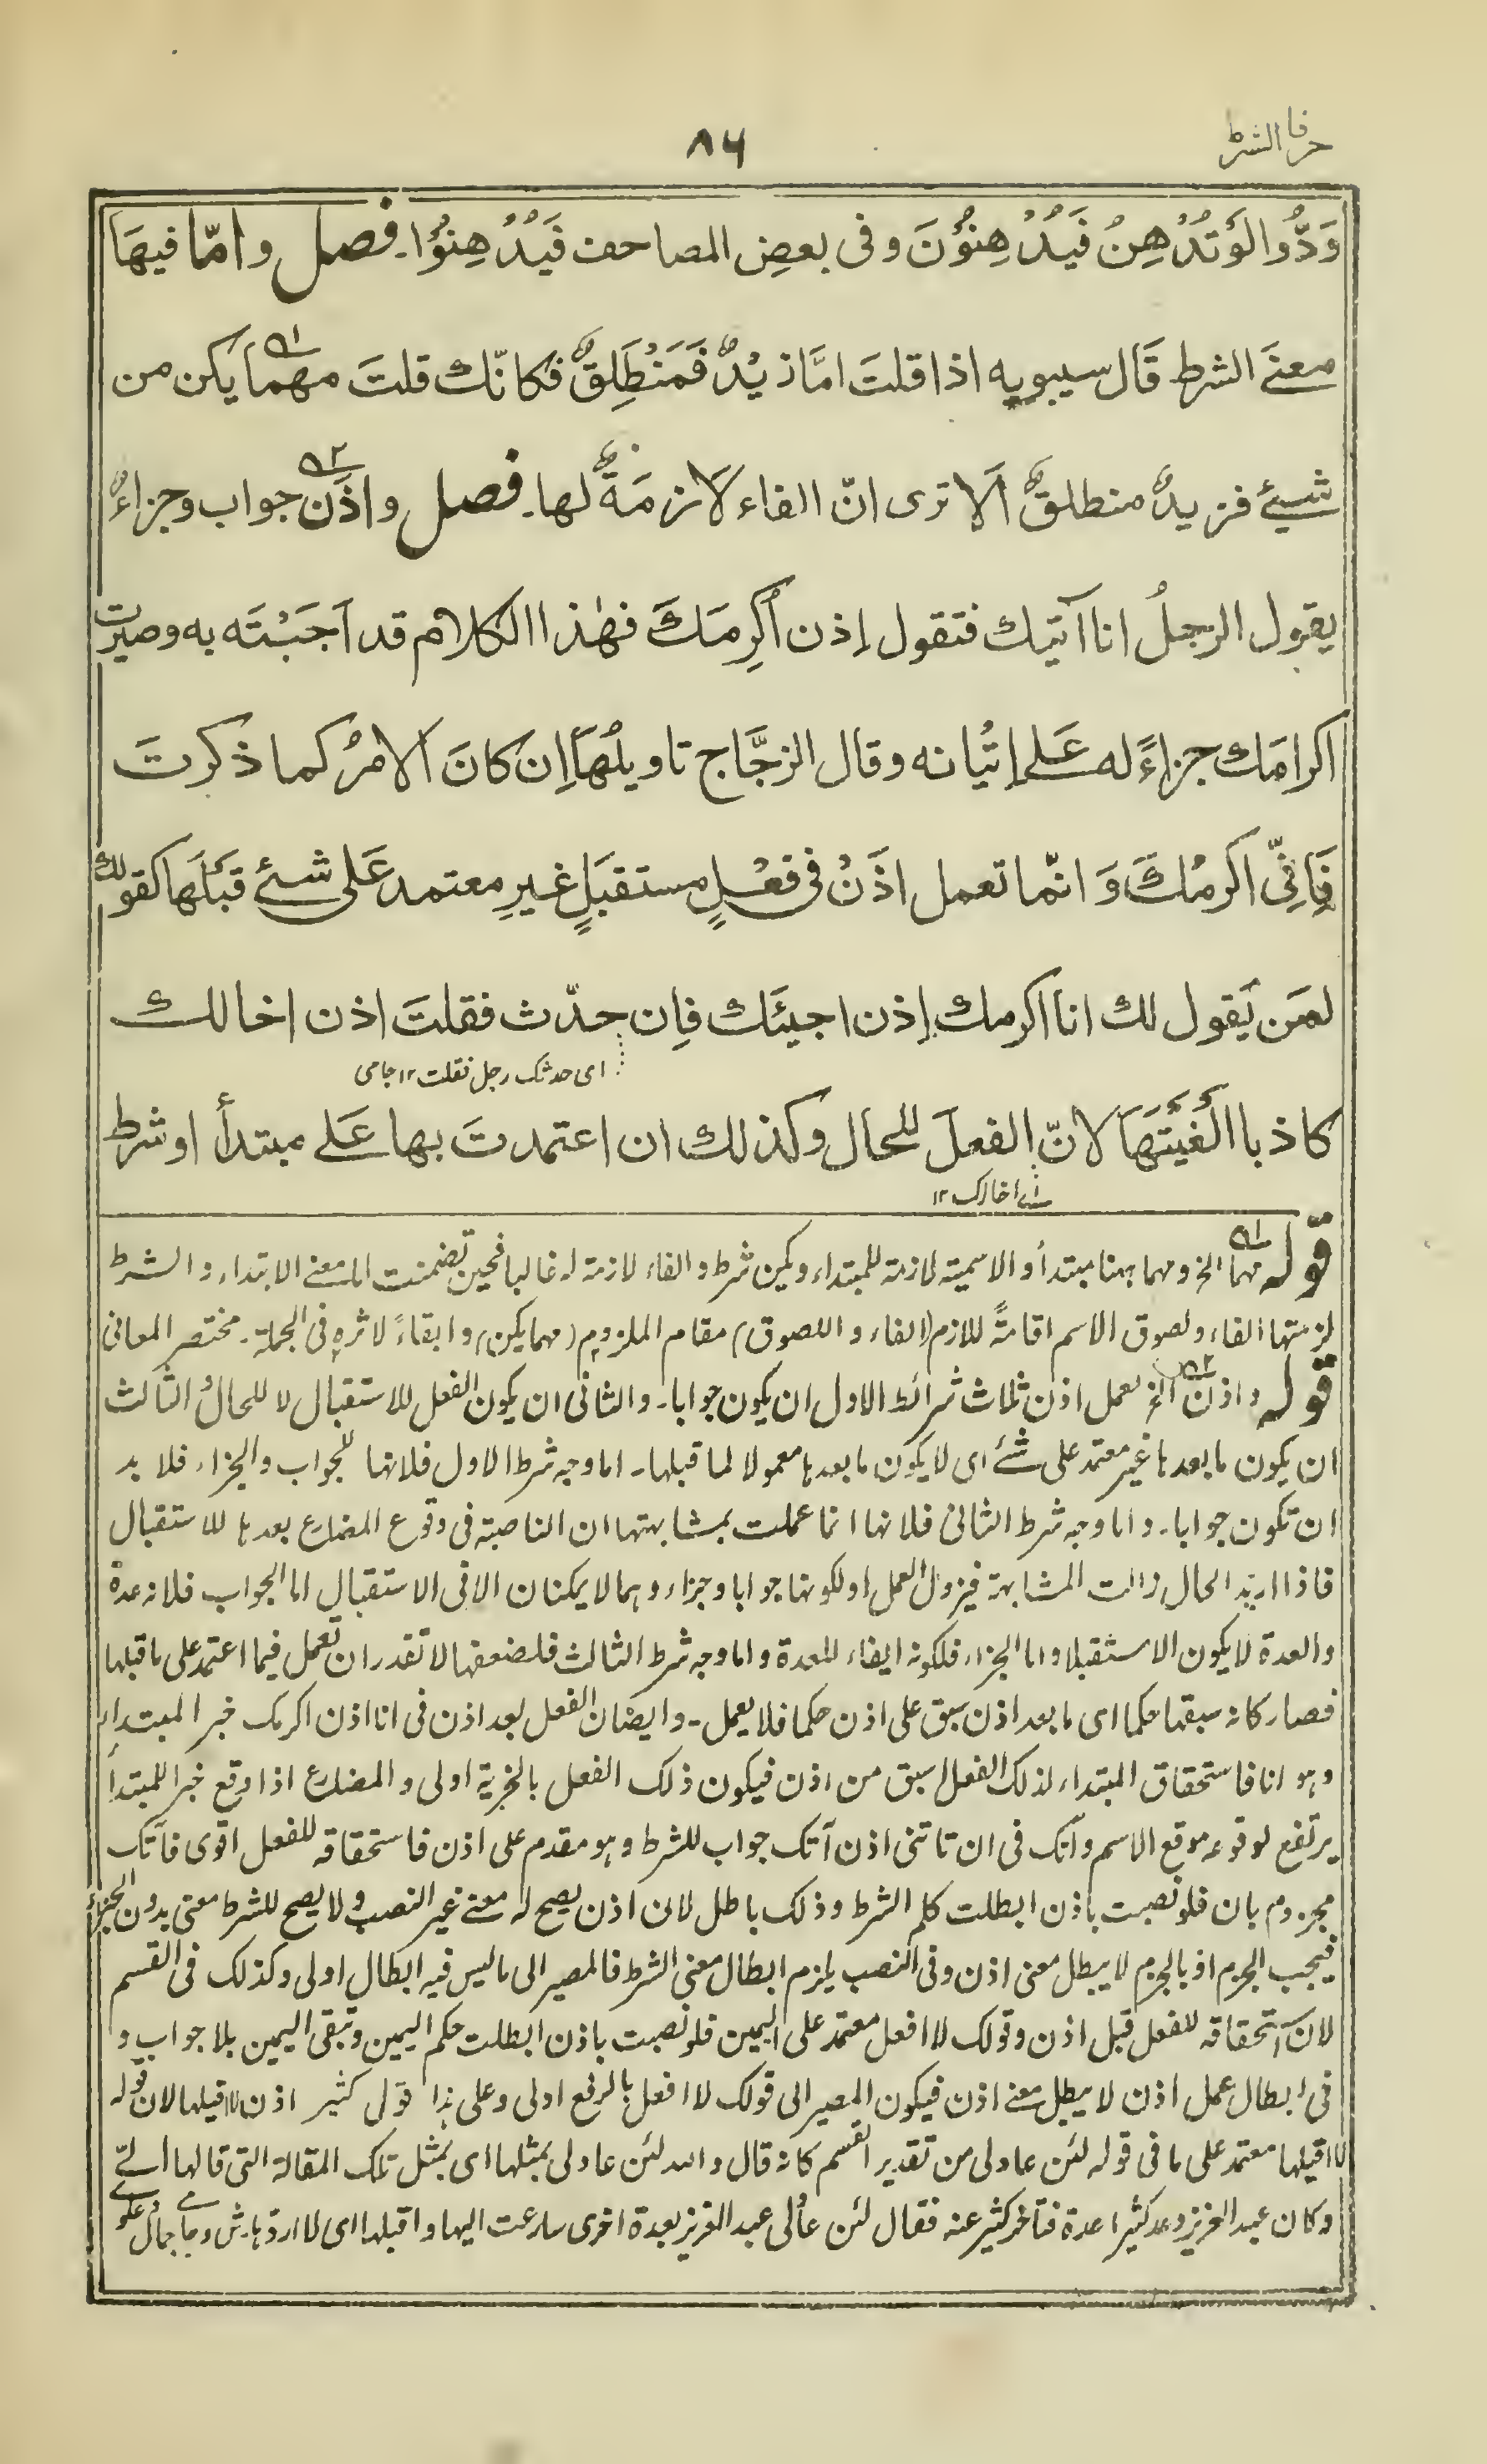 حرفا الشرط
٨٦
وَدُّوا لَوْ تُدْهِنُ فَيُدْهِنُوْنَ وفى بعضِ المصاحف فَيُدْهِنُوْا۔ فصل وامّا فيهَا
معنَے الشرط قَال سيبويه اذا قلتَ امَّا زيْدٌ فَمَنْطَلِقٌ فكانّك قلتَ مهما ۹۱ يكن من
شيئ فزيدٌ منطلقٌ اَلا ترى انّ الفاء لَازمَةٌ لها۔ فصل واذَن ۹۲ جواب وجزاءٌ
يقول الرجلُ انا آتيك فتقول اِذن اُكرِمَكَ فهٰذا الكلام قد اَجَبْتَه به وصيرت
اكرامَك جزاءً له عَلے اِتْيانه وقال الزجَّاج تاويلُهَا اِن كانَ الامْرُ كما ذكرتَ
فَاِنِّى اكرمُكَ وَانّما تعمل اذَنْ فى فعْلٍ مستقبَلٍ غيرِ معتمد عَلى شئے قبَلَها كقولك
لمَن يَقول لك انا اكرمك اِذن اجيئَك فاِن حدّث فقلتَ اذن اخالك
اى حدثك رجل فقلت ۱۲ جامى
كاذبا اَلْغَيْتَهَا لانّ الفعلَ للحال وكذلك ان اعتمدتَ بها عَلے مبتدأ اوشرط
اے اخالك ۱۲
قوله ۹۱ مهما الخ ومهما ههنا مبتدأ والاسمية لازمة للمبتداء ويكن شرط والفاء لازمة له غالبا فحين تضمنت اما معنے الابتداء والشرط
لزمتها الفاء ولصوق الاسم اقامةً للازم (الفاء واللصوق) مقام الملزوم (مهما يكن) وابقاءً لاثره فى الجملة۔ مختصر المعانى
قوله ۹۲ واذن الخ يعمل اذن ثلاث شرائط الاول ان يكون جوابا۔ والثانى ان يكون الفعل للاستقبال لا للحال الثالث
ان يكون ما بعدها غير معتمد على شئے اى لا يكون ما بعدها معمولا لما قبلها۔ اما وجه شرط الاول فلانها للجواب والجزاء فلا بد
ان تكون جوابا۔ واما وجه شرط الثانى فلانها انما عملت بمشابهتها ان الناصبة فى وقوع المضارع بعدها للاستقبال
فاذا اريد الحال زالت المشابهة فيزول العمل او لكونها جوابا وجزاء وهما لا يمكنان الا فى الاستقبال اما الجواب فلانه عدة
والعدة لا يكون الا مستقبلا واما الجزاء فلكونه ايفاء للعدة واما وجه شرط الثالث فلضعفها لا تقدر ان تعمل فيما اعتمد على ما قبلها
فصار كانه سبقها حكما اى ما بعد اذن سبق على اذن حكما فلا يعمل۔ وايضا ان الفعل بعد اذن فى انا اذن اكرمك خبر المبتداء
وهو انا فاستحقاق المبتداء لذلك الفعل اسبق من اذن فيكون ذلك الفعل بالخبرية اولى والمضارع اذا وقع خبرا للمبتدأ
يرتفع لوقوعه موقع الاسم وآتك فى ان تاتنى اذن آتك جواب للشرط وهو مقدم على اذن فاستحقاقه للفعل اقوى فآتك
مجزوم بان فلو نصبت باذن ابطلت كلم الشرط وذلك باطل لان اذن يصح له معنے غير النصب ولا يصح للشرط معنى بدون الجزاء
فيجب الجزم اذ بالجزم لا يبطل معنى اذن وفى النصب يلزم ابطال معنى الشرط فالمصير الى ما ليس فيه ابطال اولى وكذلك فى القسم
لان استحقاقه للفعل قبل اذن وقولك لا افعل معتمد على اليمين فلو نصبت باذن ابطلت حكم اليمين وتبقى اليمين بلا جواب و
فى ابطال عمل اذن لا يبطل معنے اذن فيكون المصير الى قولك لا افعل بالرفع اولى وعلى هذا قول كثير اذن لا اقيلها لان قوله
لا اقيلها معتمد على ما فى قوله لئن عاد لى من تقدير القسم كانه قال والله لئن عاد لى بمثلها اى بمثل تلك المقالة التى قالها الے
وكان عبد العزيز وعد كثيرا عدة فتاخر كثير عنه فقال لئن عاد لى عبد العزيز بعدة اخرى سارعت اليها واقبلها اى لا اردها